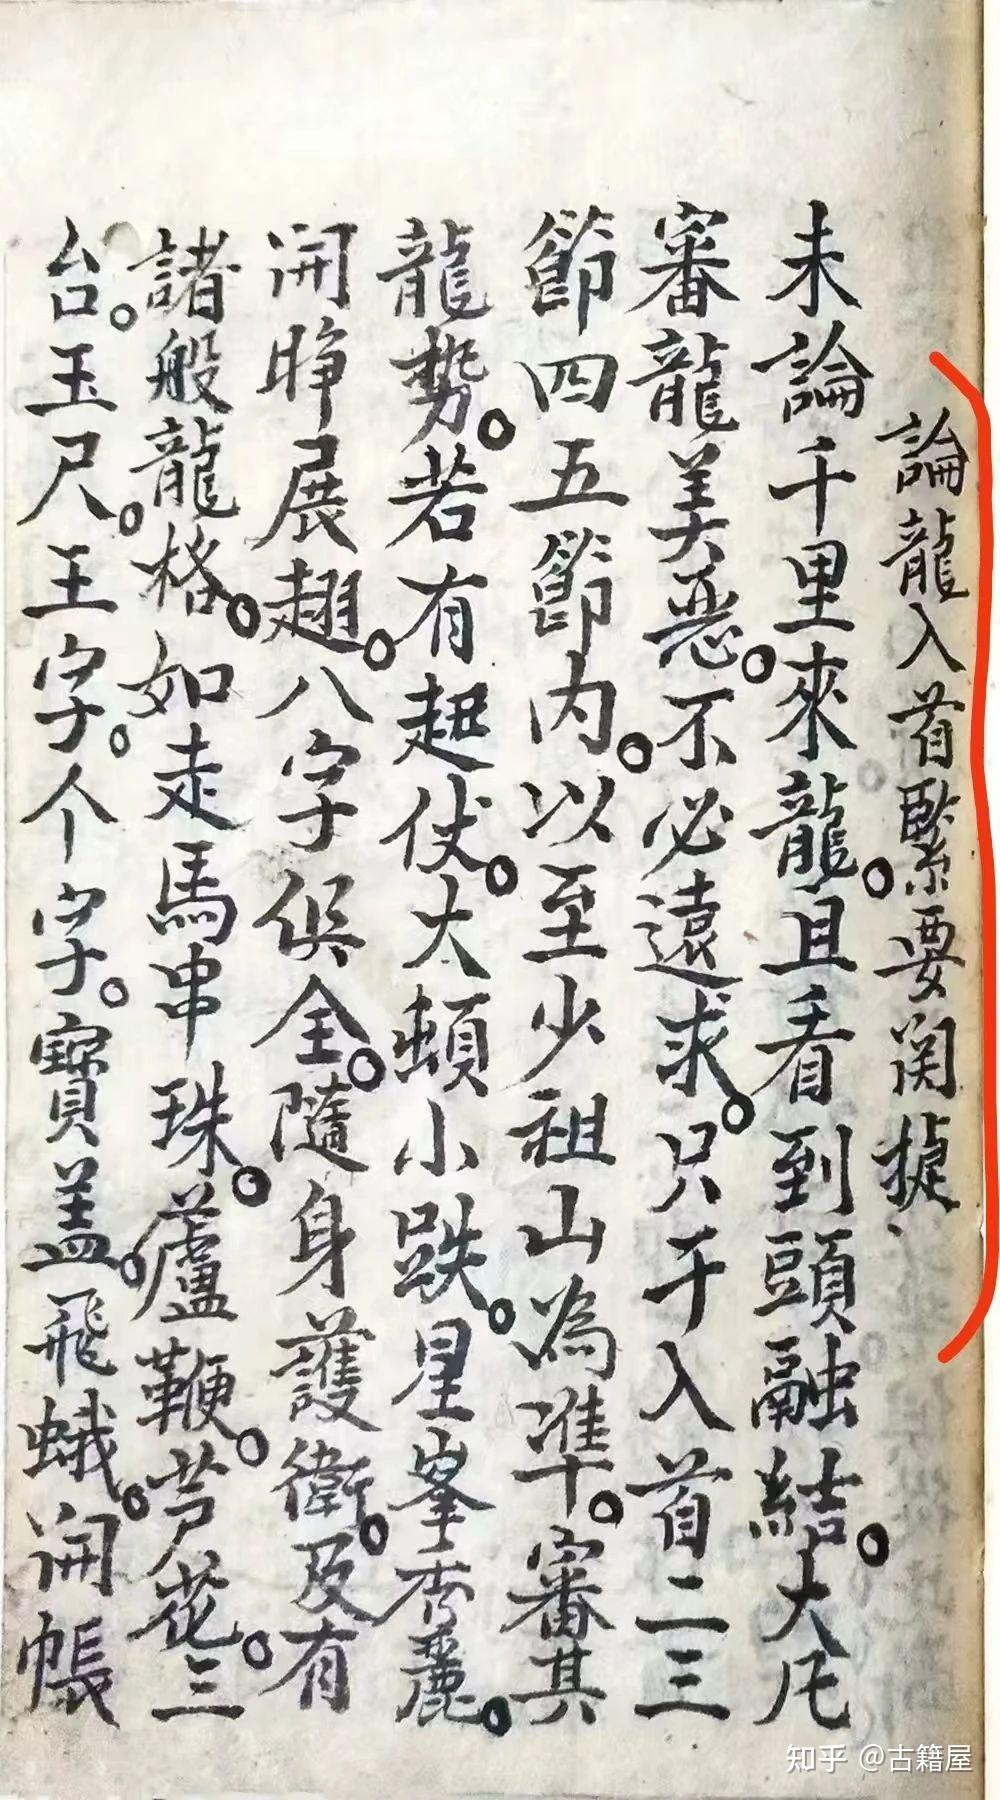 論龍入首緊要関㨗、
未論千里來龍。且看到頭融結。大凡
審龍美惡。不必遠求。只于入首二三
節四五節内。以至少祖山為凖。審其
龍势。若有起伏。大頓小跌。星峯秀麗。
開睁展翅。八字俱全。隨身護衛。及有
諸般龍格。如走馬串珠。蘆鞭。芦花。三
台。玉尺。王字。个字。寳盖。飛蛾。開帳
知乎 @古籍屋